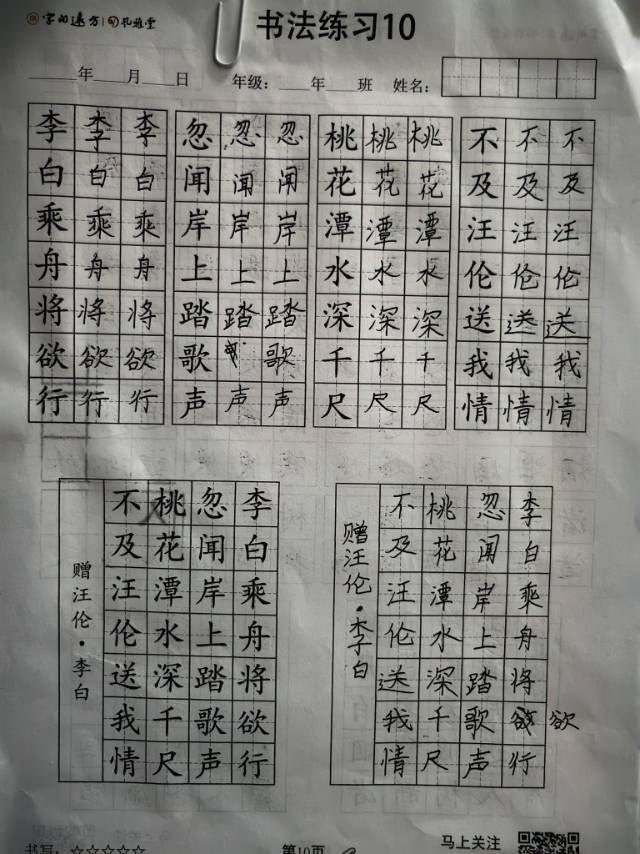 字向远方 礼雅堂
书法练习10
年 月 日 年级： 年 班 姓名：
李白乘舟将欲行
李白乘舟将欲行
李白乘舟将欲行
忽闻岸上踏歌声
忽闻岸上踏声
忽闻岸上踏歌声
桃花潭水深千尺
桃花潭水深千尺
桃花潭水深千尺
不及汪伦送我情
不及汪伦送我情
不及汪伦送我情
李白乘舟将欲行
忽闻岸上踏歌声
桃花潭水深千尺
不及汪伦送我情
赠汪伦·李白
欲
李白乘舟将欲行
忽闻岸上踏歌声
桃花潭水深千尺
不及汪伦送我情
赠汪伦·李白
书写：☆☆☆☆☆
第10页
马上关注